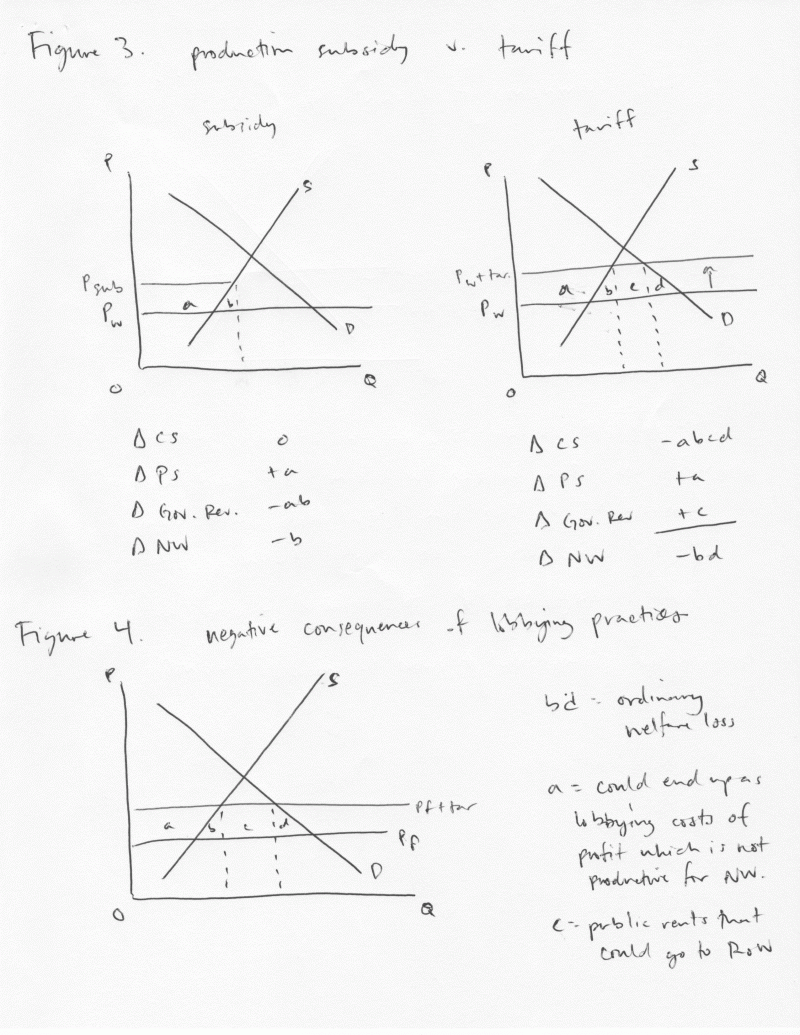 Figure 3. production subsidy v. tariff
subsidy
P
S
Psub
Pw
a b
D
O
Q
Δ CS 0
Δ PS +a
Δ Gov. Rev. -ab
Δ NW -b
tariff
P
S
Pw+tar.
a b c d
Pw
D
O
Q
Δ CS -abcd
Δ PS +a
Δ Gov. Rev +c
Δ NW -bd
Figure 4. negative consequences of lobbying practices
P
S
Pf+tar
a b c d
Pf
D
O
Q
bd = ordinary
welfare loss
a = could end up as
lobbying costs of
profit which is not
productive for NW.
c = public rents that
could go to RoW